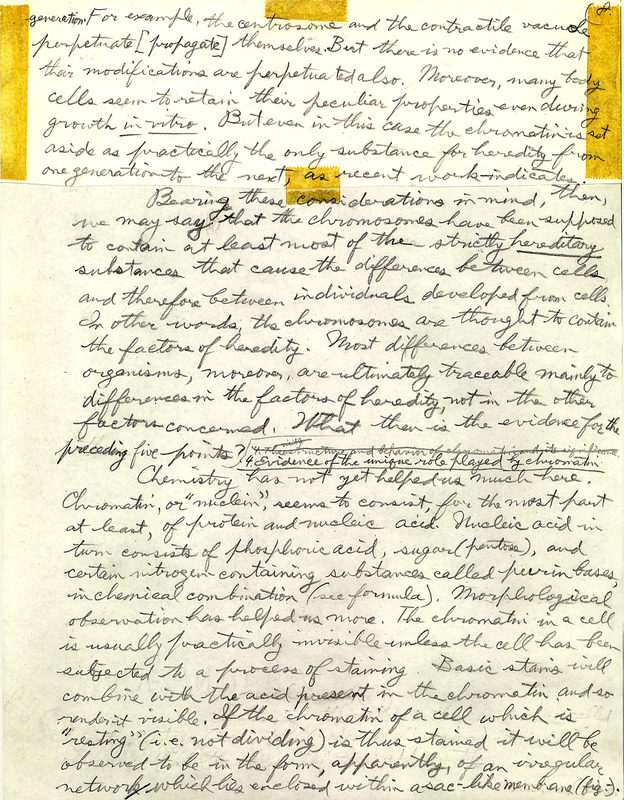 8.
generation. For example, the centrosome and the contractile vacuole
perpetuate [propagate] themselves. But there is no evidence that
their modifications are perpetuated also. Moreover, many body
cells seem to retain their peculiar properties even during
growth in vitro. But even in this case the chromatin is set
aside as practically the only substance for heredity from
one generation to the next, as recent work indicates.
Bearing these considerations in mind, then,
we may say that the chromosomes have been supposed
to contain at least most of the strictly hereditary
substances that cause the differences between cells
and therefore between individuals developed from cells.
In other words, the chromosomes are thought to contain
the factors of heredity. Most differences between
organisms, moreover, are ultimately traceable mainly to
differences in the factors of heredity, not in the other
factors concerned. What then is the evidence for the
preceding five points? 4. The structure and behavior of
4. Evidence of the unique role played by chromatin
Chemistry has not yet helped us much here.
Chromatin, or "nuclein", seems to consist, for the most part
at least, of protein and nucleic acid. Nucleic acid in
turn consists of phosphoric acid, sugar (pentose), and
certain nitrogen-containing substances called purin bases,
in chemical combination (see formula). Morphological
observation has helped us more. The chromatin in a cell
is usually practically invisible unless the cell has been
subjected to a process of staining. Basic stains will
combine with the acid present in the chromatin and so
render it visible. If the chromatin of a cell which is
"resting" (i.e. not dividing) is thus stained it will be
observed to be in the form, apparently, of an irregular
network, which lies enclosed within a sac-like membrane (fig-).